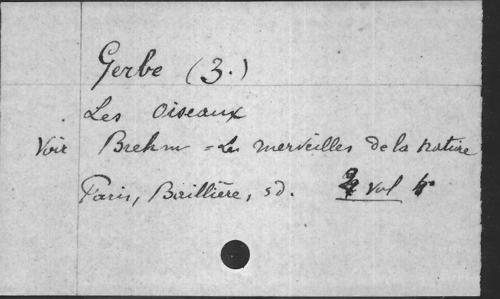 Gerbe (3.)
Les Oiseaux
Voir Brehm - Les merveilles de la nature
Paris, Baillière, sd. 2 vol 4°